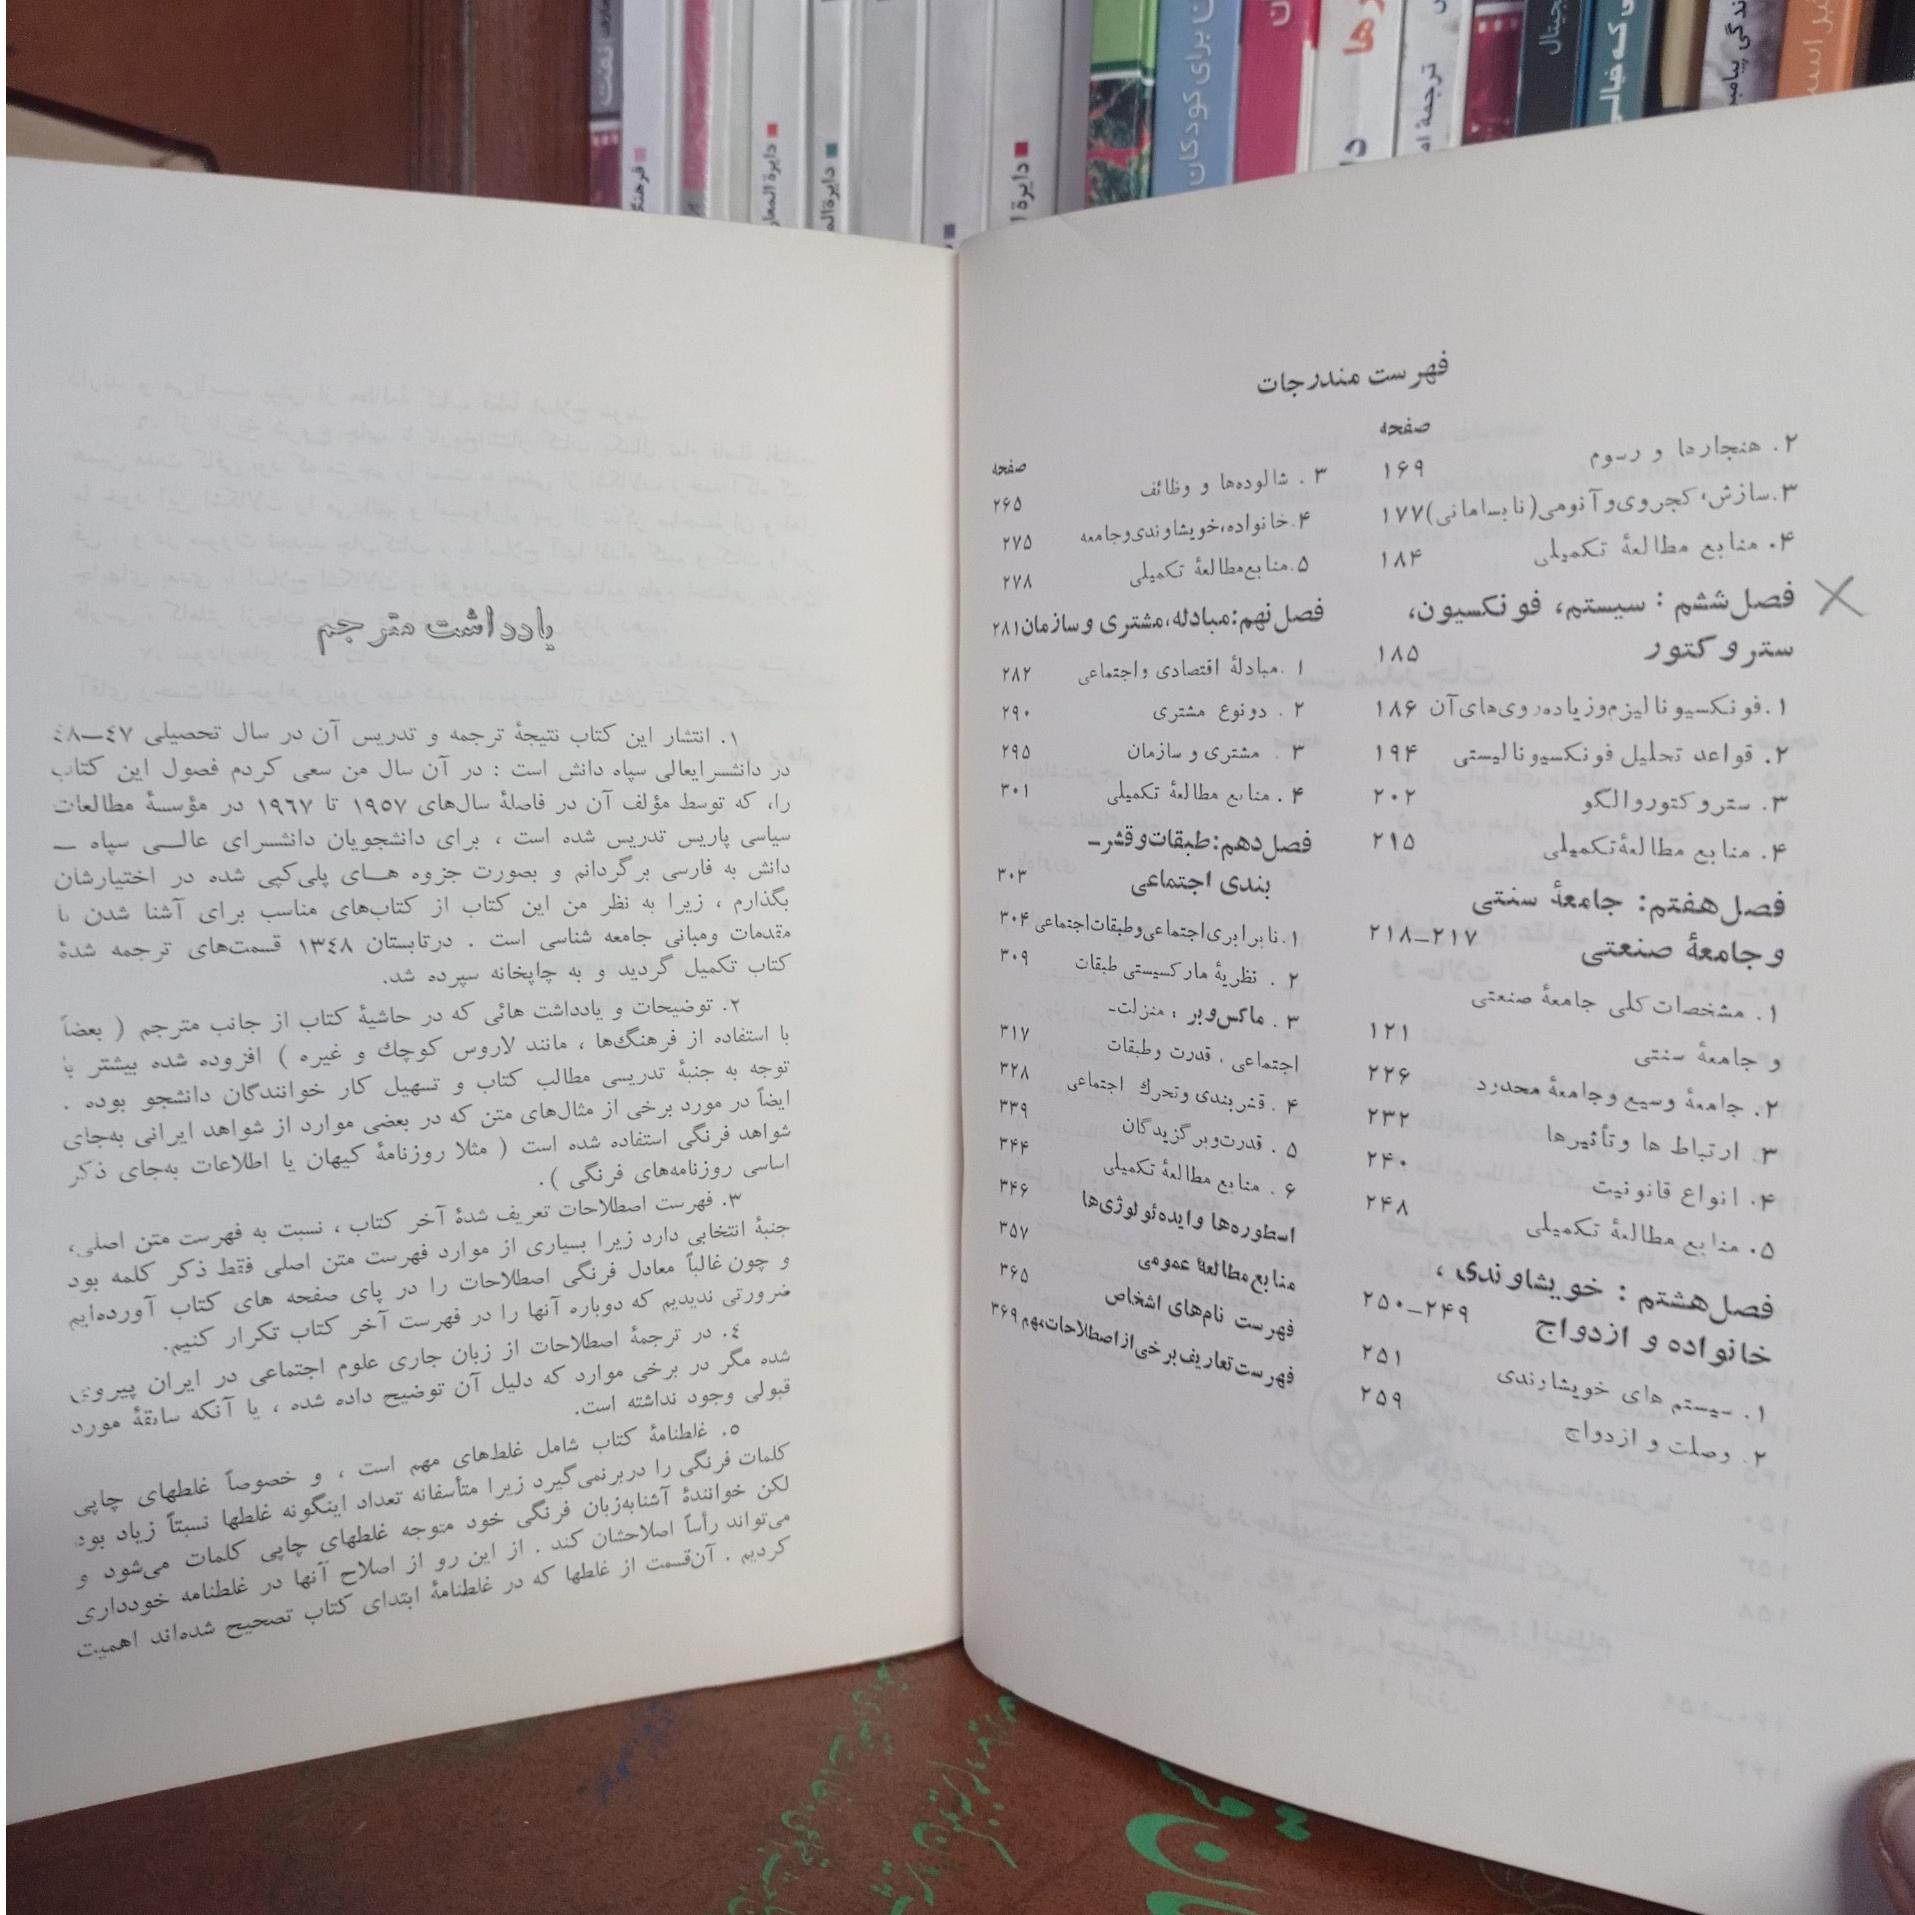 فهرست مندرجات
صفحه
۲. هنجارها و رسوم ۱۶۹
۳.سازش، کجروی و آنومی (نابسامانی) ۱۷۷
۴. منابع مطالعهٔ تکمیلی ۱۸۴
فصل ششم : سیستم، فونکسیون،
ستروکتور ۱۸۵
۱.فونکسیونالیزم و زیاده‌روی‌های آن ۱۸۶
۲. قواعد تحلیل فونکسیونالیستی ۱۹۴
۳. ستروکتور والگو ۲۰۲
۴. منابع مطالعهٔ تکمیلی ۲۱۵
فصل هفتم: جامعهٔ سنتی
و جامعهٔ صنعتی ۲۱۷–۲۱۸
۱. مشخصات کلی جامعهٔ صنعتی
و جامعهٔ سنتی ۱۲۱
۲. جامعهٔ وسیع وجامعهٔ محدرد ۲۲۶
۳. ارتباط ها وتأثیرها ۲۳۲
۴. انواع قانونیت ۲۴۰
۵. منابع مطالعهٔ تکمیلی ۲۴۸
فصل هشتم : خویشاوندی ،
خانواده و ازدواج ۲۴۹–۲۵۰
۱. سیستم های خویشارندی ۲۵۱
۲. وصلت و ازدواج ۲۵۹
صفحه
۳ . شالوده‌ها و وظائف ۲۶۵
۴.خانواده،خویشاوندی و جامعه ۲۷۵
۵.منابع مطالعهٔ تکمیلی ۲۷۸
فصل نهم: مبادله، مشتری و سازمان ۲۸۱
۱ .مبادلهٔ اقتصادی و اجتماعی ۲۸۲
۲ . دونوع مشتری ۲۹۰
۳ . مشتری و سازمان ۲۹۵
۴ . منابع مطالعهٔ تکمیلی ۳۰۱
فصل دهم: طبقات و قشر–
بندی اجتماعی ۳۰۳
۱.نابرابری اجتماعی وطبقات اجتماعی ۳۰۴
۲ . نظریهٔ مارکسیستی طبقات ۳۰۹
۳ . ماکس‌وبر : منزلت–
اجتماعی ، قدرت وطبقات ۳۱۷
۴ . قشربندی وتحرك اجتماعی ۳۲۸
۵ . قدرت وبرگزیدگان ۳۳۹
۶ . منابع مطالعهٔ تکمیلی ۳۴۴
اسطوره‌ها و ایده‌ئولوژی‌ها ۳۴۶
منابع مطالعهٔ عمومی ۳۵۷
فهرست نام‌های اشخاص ۳۶۵
فهرست تعاریف برخی از اصطلاحات مهم ۳۶۹
یادداشت مترجم
۱. انتشار این کتاب نتیجهٔ ترجمه و تدریس آن در سال تحصیلی ٤٧–٤٨
در دانشسرایعالی سپاه دانش است : در آن سال من سعی کردم فصول این کتاب
را، که توسط مؤلف آن در فاصلهٔ سال‌های ۱۹٥۷ تا ۱۹٦۷ در مؤسسهٔ مطالعات
سیاسی پاریس تدریس شده است ، برای دانشجویان دانشسرای عالـی سپاه –
دانش به فارسی برگردانم و بصورت جزوه هـای پلی‌کپی شده در اختیارشان
بگذارم ، زیرا به نظر من این کتاب از کتاب‌های مناسب برای آشنا شدن با
مقدمات ومبانی جامعه شناسی است . درتابستان ۱۳٤۸ قسمت‌های ترجمه شدهٔ
کتاب تکمیل گردید و به چاپخانه سپرده شد.
۲. توضیحات و یادداشت هائی که در حاشیهٔ کتاب از جانب مترجم ( بعضاً
با استفاده از فرهنگ‌ها ، مانند لاروس کوچك و غیره ) افزوده شده بیشتر با
توجه به جنبهٔ تدریسی مطالب کتاب و تسهیل کار خوانندگان دانشجو بوده .
ایضاً در مورد برخی از مثال‌های متن که در بعضی موارد از شواهد ایرانی به‌جای
شواهد فرنگی استفاده شده است ( مثلا روزنامهٔ کیهان یا اطلاعات به‌جای ذکر
اسامی روزنامه‌های فرنگی ).
۳. فهرست اصطلاحات تعریف شدهٔ آخر کتاب ، نسبت به فهرست متن اصلی،
جنبهٔ انتخابی دارد زیرا بسیاری از موارد فهرست متن اصلی فقط ذکر کلمه بود
و چون غالباً معادل فرنگی اصطلاحات را در پای صفحه های کتاب آورده‌ایم
ضرورتی ندیدیم که دوباره آنها را در فهرست آخر کتاب تکرار کنیم.
٤. در ترجمهٔ اصطلاحات از زبان جاری علوم اجتماعی در ایران پیروی
شده مگر در برخی موارد که دلیل آن توضیح داده شده ، یا آنکه سابقهٔ مورد
قبولی وجود نداشته است.
٥. غلطنامهٔ کتاب شامل غلط‌های مهم است ، و خصوصاً غلطهای چاپی
کلمات فرنگی را دربرنمی‌گیرد زیرا متأسفانه تعداد اینگونه غلطها نسبتاً زیاد بود
لکن خوانندهٔ آشنابه‌زبان فرنگی خود متوجه غلطهای چاپی کلمات می‌شود و
می‌تواند رأساً اصلاحشان کند . از این رو از اصلاح آنها در غلطنامه خودداری
کردیم . آن‌قسمت از غلطها که در غلطنامهٔ ابتدای کتاب تصحیح شده‌اند اهمیت
دایرة المعار
دایرة الم
دایرة ا
برای کودکان
ترجمهٔ ا